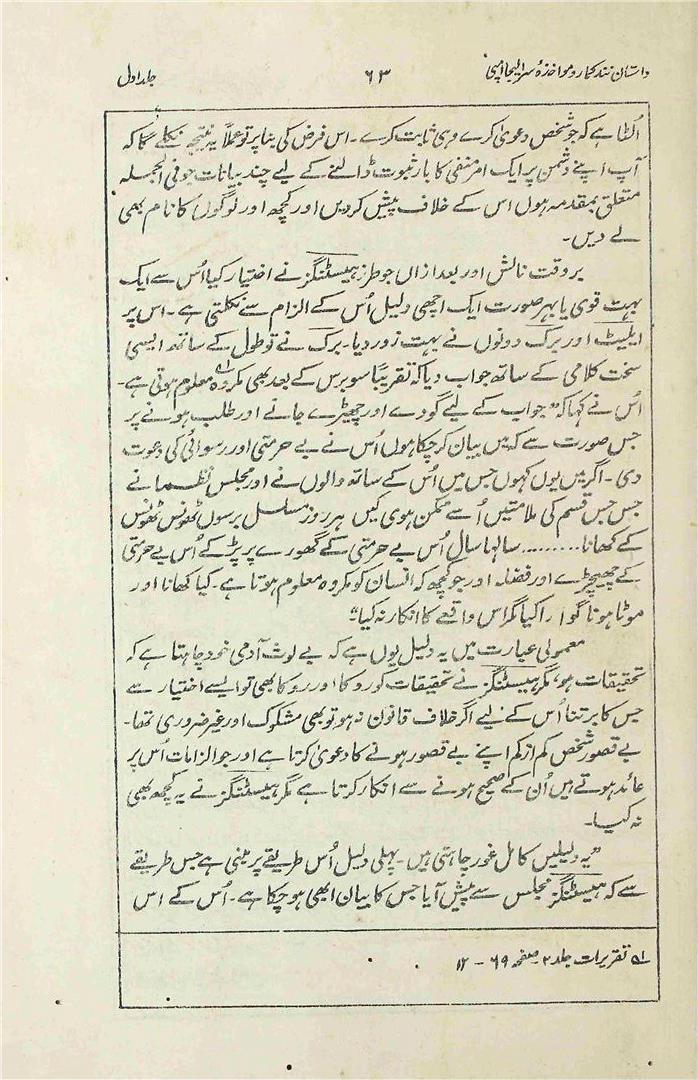 داستان نند کمار و مواخذہ سر ایلیجا امپی
۶۳
جلد اول
اُلٹا ہے کہ جو شخص دعویٰ کرے وہی ثابت کرے۔ اس فرض کی بنا پر تو عملاً یہ نتیجہ نکلے گا کہ
آپ اپنے دشمن پر ایک امر منفی کا بار ثبوت ڈالنے کے لیے چند بیانات جو فی الجملہ
متعلق بمقدمہ ہوں اس کے خلاف پیش کردیں اور کچھ اور لوگوں کا نام بھی
لے دیں۔
بروقت نالش اور بعد ازاں جو طرز ہیسٹنگز نے اختیار کیا اُس سے ایک
بہت قوی یا بہر صورت ایک اچھی دلیل اُس کے الزام سے نکلتی ہے۔ اس پر
ایلیٹ اور برک دونوں نے بہت زور دیا۔ برک نے تو طول کے ساتھ ایسی
سخت کلامی کے ساتھ جواب دیا کہ تقریباً سو برس کے بعد بھی مکروہ معلوم ہوتی ہے۔
اُس نے کہا کہ ”جواب کے لیے گودے اور چھیڑے جانے اور طلب ہونے پر
جس صورت سے کہ میں بیان کرچکا ہوں اُس نے بے حرمتی اور رسوائی کی دعوت
دی۔ اگر میں یوں کہوں جس میں اُس کے ساتھ والوں نے اور مجلس نظما نے
جس جس قسم کی ملامتیں اُسے ممکن ہوی کیں ہر روز مسلسل برسوں ٹھونس ٹھونس
کے کھانا......... سالہا سال اُس بے حرمتی کے گھورے پر پڑ کے اُس بے حرمتی
کے چھیچھڑے اور فضلہ اور جو کچھ کہ انسان کو مکروہ معلوم ہوتا ہے۔ کیا کھانا اور
موٹا ہونا گوارا کیا مگر اس واقعے کا انکار نہ کیا“۔
معمولی عبارت میں یہ دلیل یوں ہے کہ بے لوث آدمی خود چاہتا ہے کہ
تحقیقات ہو، مگر ہیسٹنگز نے تحقیقات کو روکا اور روکا بھی تو ایسے اختیار سے
جس کا برتنا اُس کے لیے اگر خلاف قانون نہ ہو تو بھی مشکوک اور غیر ضروری تھا۔
بے قصور شخص کم از کم اپنے بے قصور ہونے کا دعویٰ کرتا ہے اور جو الزامات اُس پر
عائد ہوتے ہیں اُن کے صحیح ہونے سے انکار کرتا ہے مگر ہیسٹنگز نے یہ کچھ بھی
نہ کیا۔
”یہ دلیلیں کامل غور چاہتی ہیں۔ پہلی دلیل اُس طریقے پر مبنی ہے جس طریقے
سے کہ ہیسٹنگز مجلس سے پیش آیا جس کا بیان ابھی ہو چکا ہے۔ اُس کے اس
لہ تقریرات جلد ۲ صفحہ ۶۹ - ۱۲